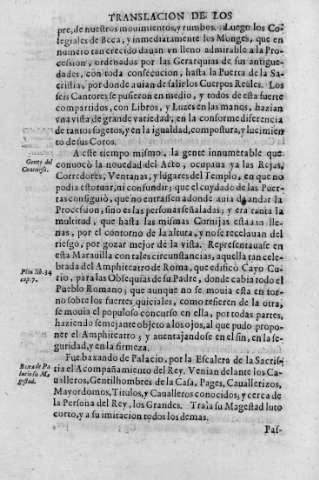 TRANSLACION DE LOS
pre, de nuestros movimientos, y rumbos. Luego los Co-
legiales de Beca, y inmediatamente los Monges, que en
numero tan crecido dauan vn lleno admirable a la Pro-
cession, ordenados por las Gerarquias de sus antigue-
dades, con toda consecucion, hasta la Puerta de la Sa-
cristia, por donde auian de salir los Cuerpos Reales. Los
seis Cantores se pusieron en medio, y todos de esta suerte
compartidos, con Libros, y Luzes en las manos, hazian
vna vista de grande variedad, en la conforme diferencia
de tantos sugetos, y en la igualdad, compostura, y lucimien-
to de sus Coros.
A este tiempo mismo, la gente innumerable que
Gente del
Concurso.
convocò la novedad del Acto, ocupaua yà las Rejas,
Corredores, Ventanas, y lugares del Templo, en que no
podia estoruar, ni confundir; que el cuydado de las Puer-
tas consiguiò, que no entrassen adonde auia de andar la
Procession, sino es las personas señaladas; y era tanta la
multitud, que hasta las mismas Cornijas estauan lle-
nas, por el contorno de la altura, y no se recelauan del
riesgo, por gozar mejor de la vista. Representauase en
esta Marauilla con tales circunstancias, aquella tan cele-
Plin. lib. 34
cap. 7.
brada del Amphiteatro de Roma, que edificò Cayo Cu-
rio, para las Obsequias de su Padre, donde cabia todo el
Pueblo Romano; que aunque no se mouia esta en tor-
no sobre los fuertes quiciales, como refieren de la otra,
se mouia el populoso concurso en ella, por todas partes,
haziendo semejante objeto a los ojos, al que pudo propo-
ner el Amphiteatro, y auentajandose en el fin, en la se-
guridad, y en la firmeza.
Fue baxando de Palacio, por la Escalera de la Sacris-
Baxa de Pa
lacio su Ma
gestad.
tia el Acompañamiento del Rey. Venian delante los Ca-
ualleros, Gentilhombres de la Casa, Pages, Caualletizos,
Mayordomos, Titulos, y Caualleros conocidos; y cerca de
la Persona del Rey, los Grandes. Traìa su Magestad luto
corto, y a su imitacion todos los demas.
Pas-